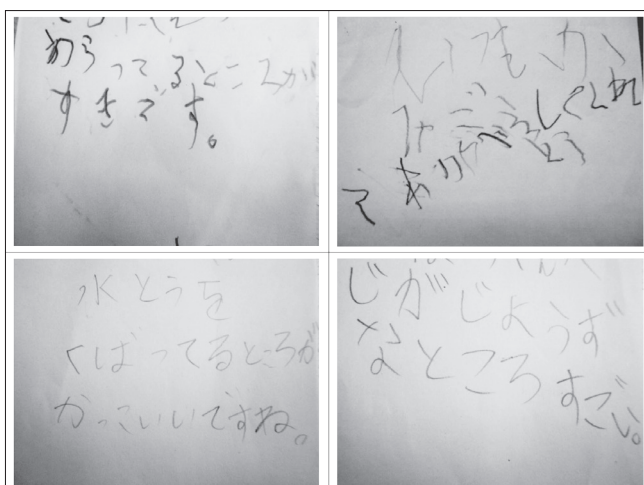 わらってるところが
すきです。
いつもか
してくれ
てありがとう
水とうを
くばってるところが
かっこいいですね。
じがじょうず
なところ
すごい。